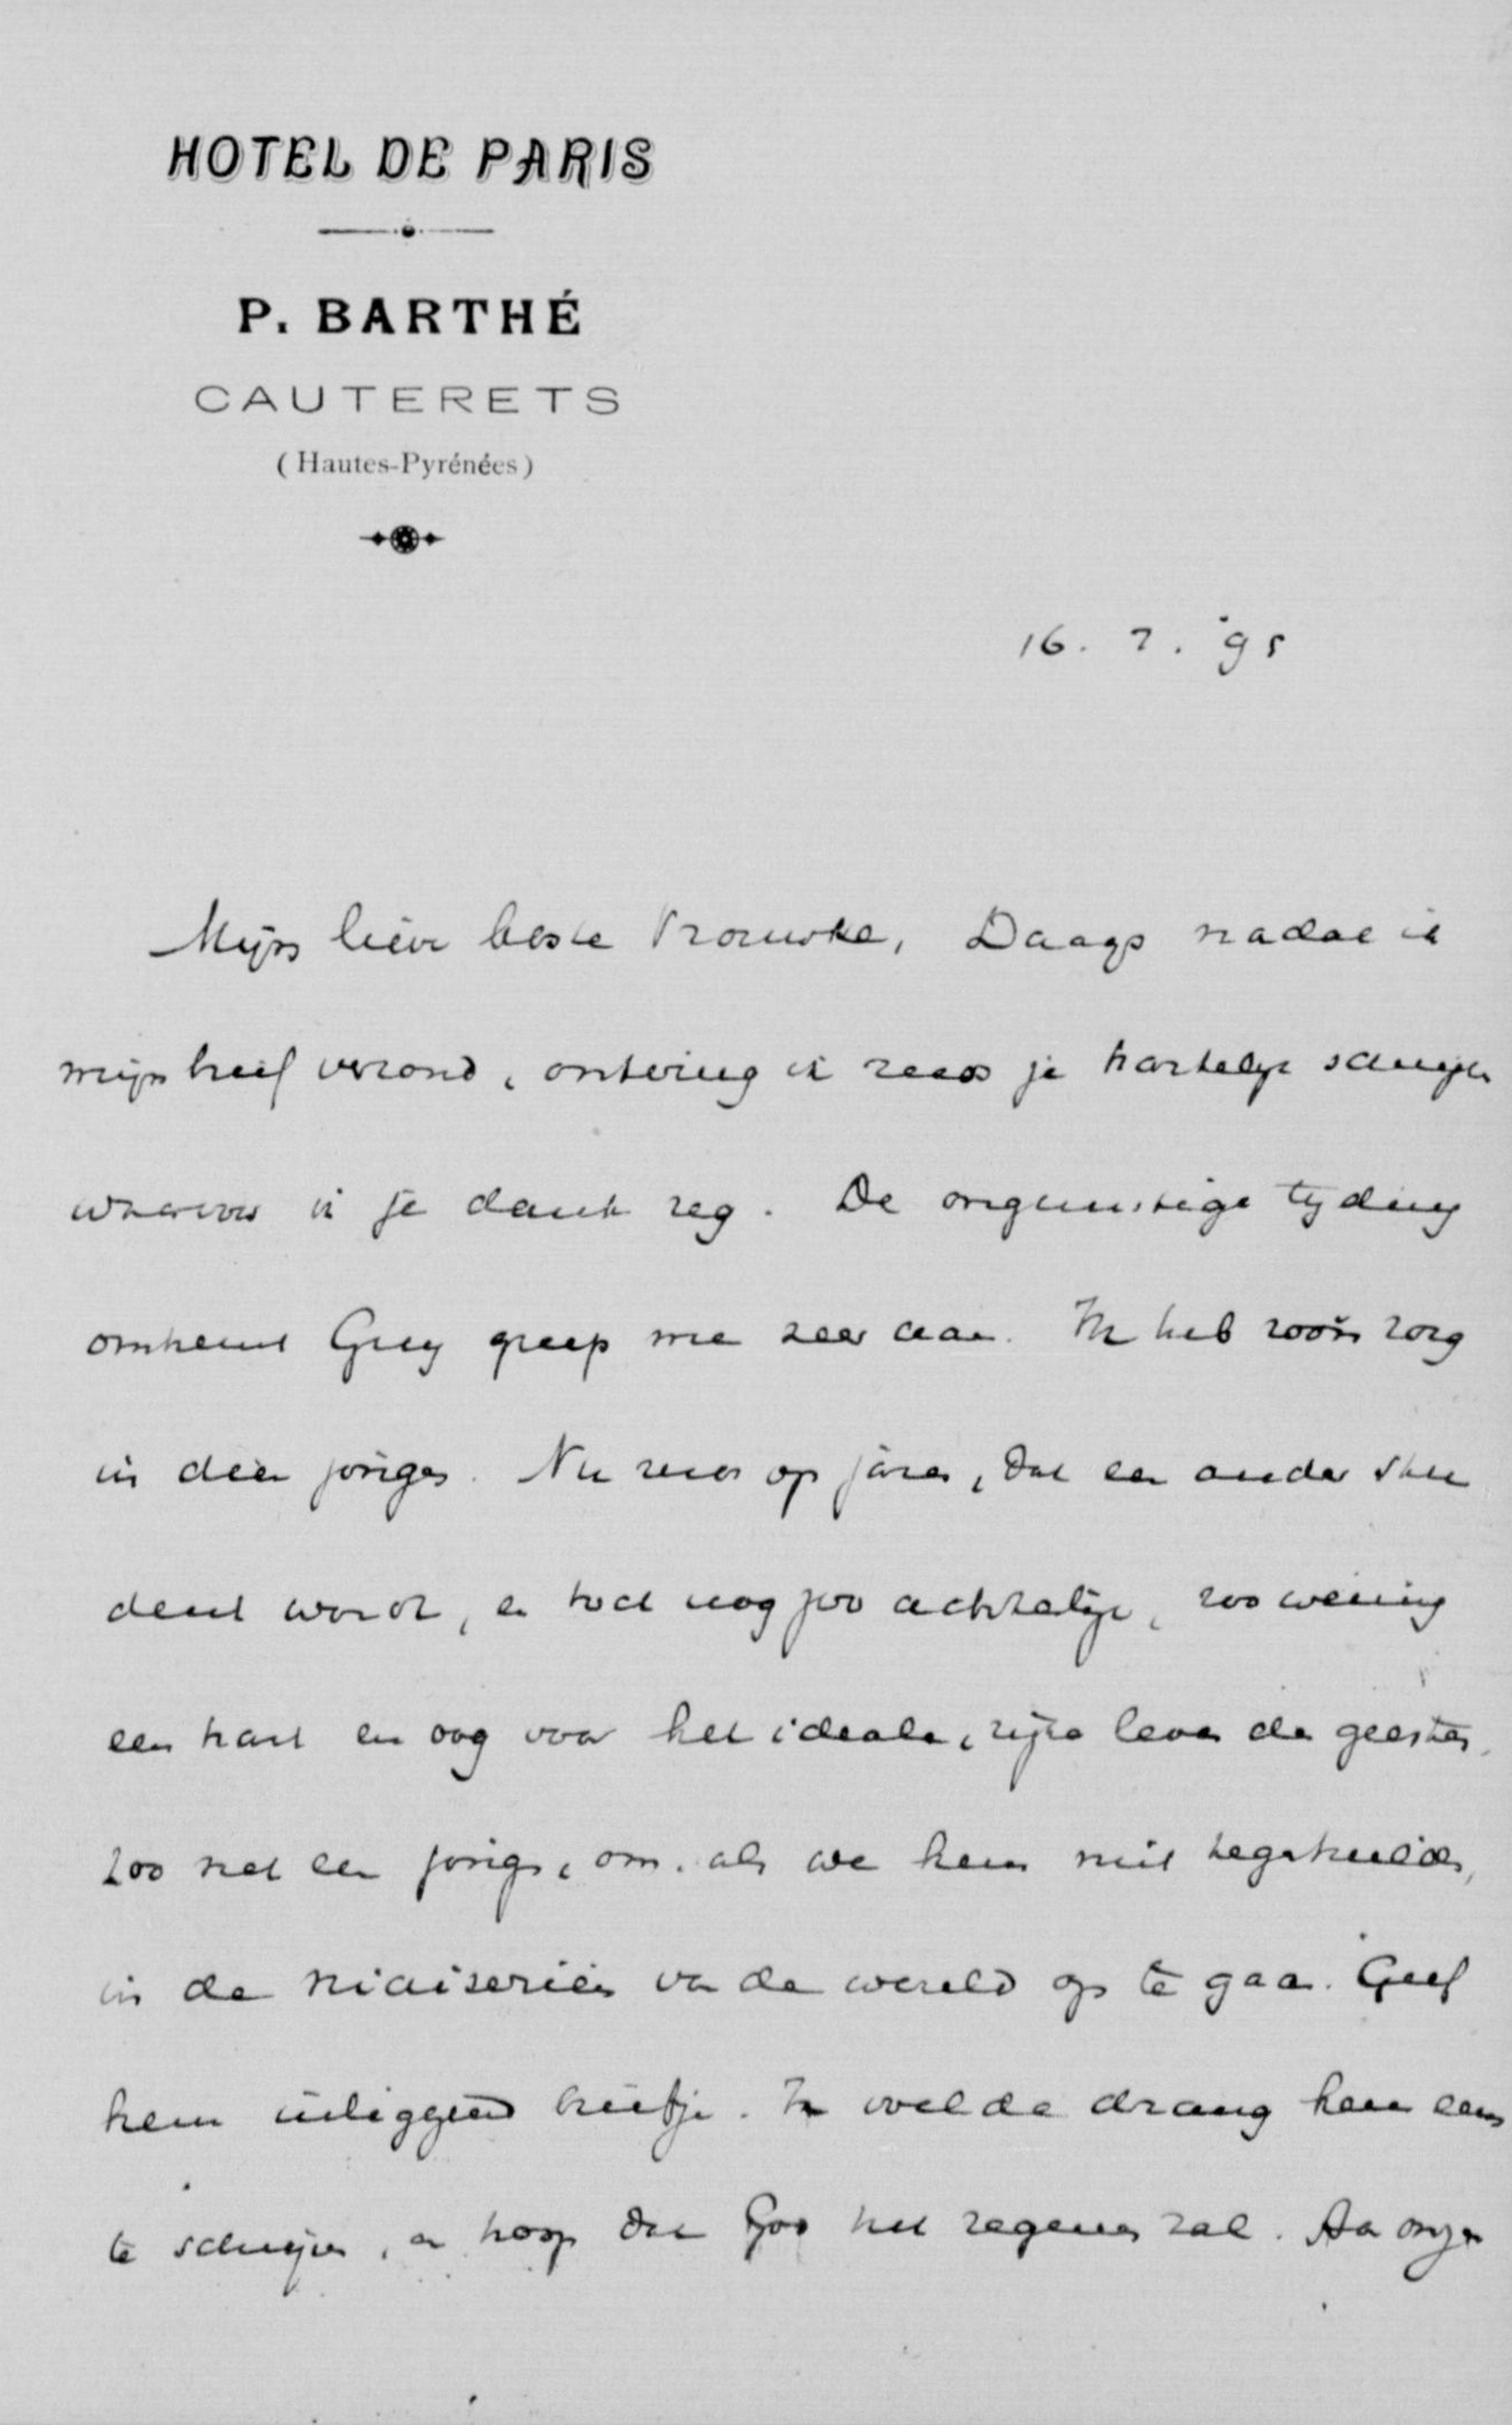 HOTEL DE PARIS
P. BARTHÉ
CAUTERETS
(Hautes-Pyrénées)
16. 7. '95
Mijn lieve beste Vrouwke, Daags nadat ik
mijn brief verzond, ontving ik reeds je hartelijk schrijven
waarvoor ik je dank zeg. De ongunstige tyding
omtrent Guy greep me zeer aan. Ik heb zoo'n zorg
in dien jongen. Nu reeds op jaren, dat een ander stu
dent wordt, en toch nog zoo achterlijk, zoo weinig
een hart en oog voor het ideale, rijke leven der geesten,
zoo net een jongen, om, als we hem niet tegenhielden,
in de niaiserieën van de wereld op te gaan. Geef
hem inliggend briefje. Ik voelde drang hem eens
te schrijven, en hoop dat God het zegenen zal. Aan onzen